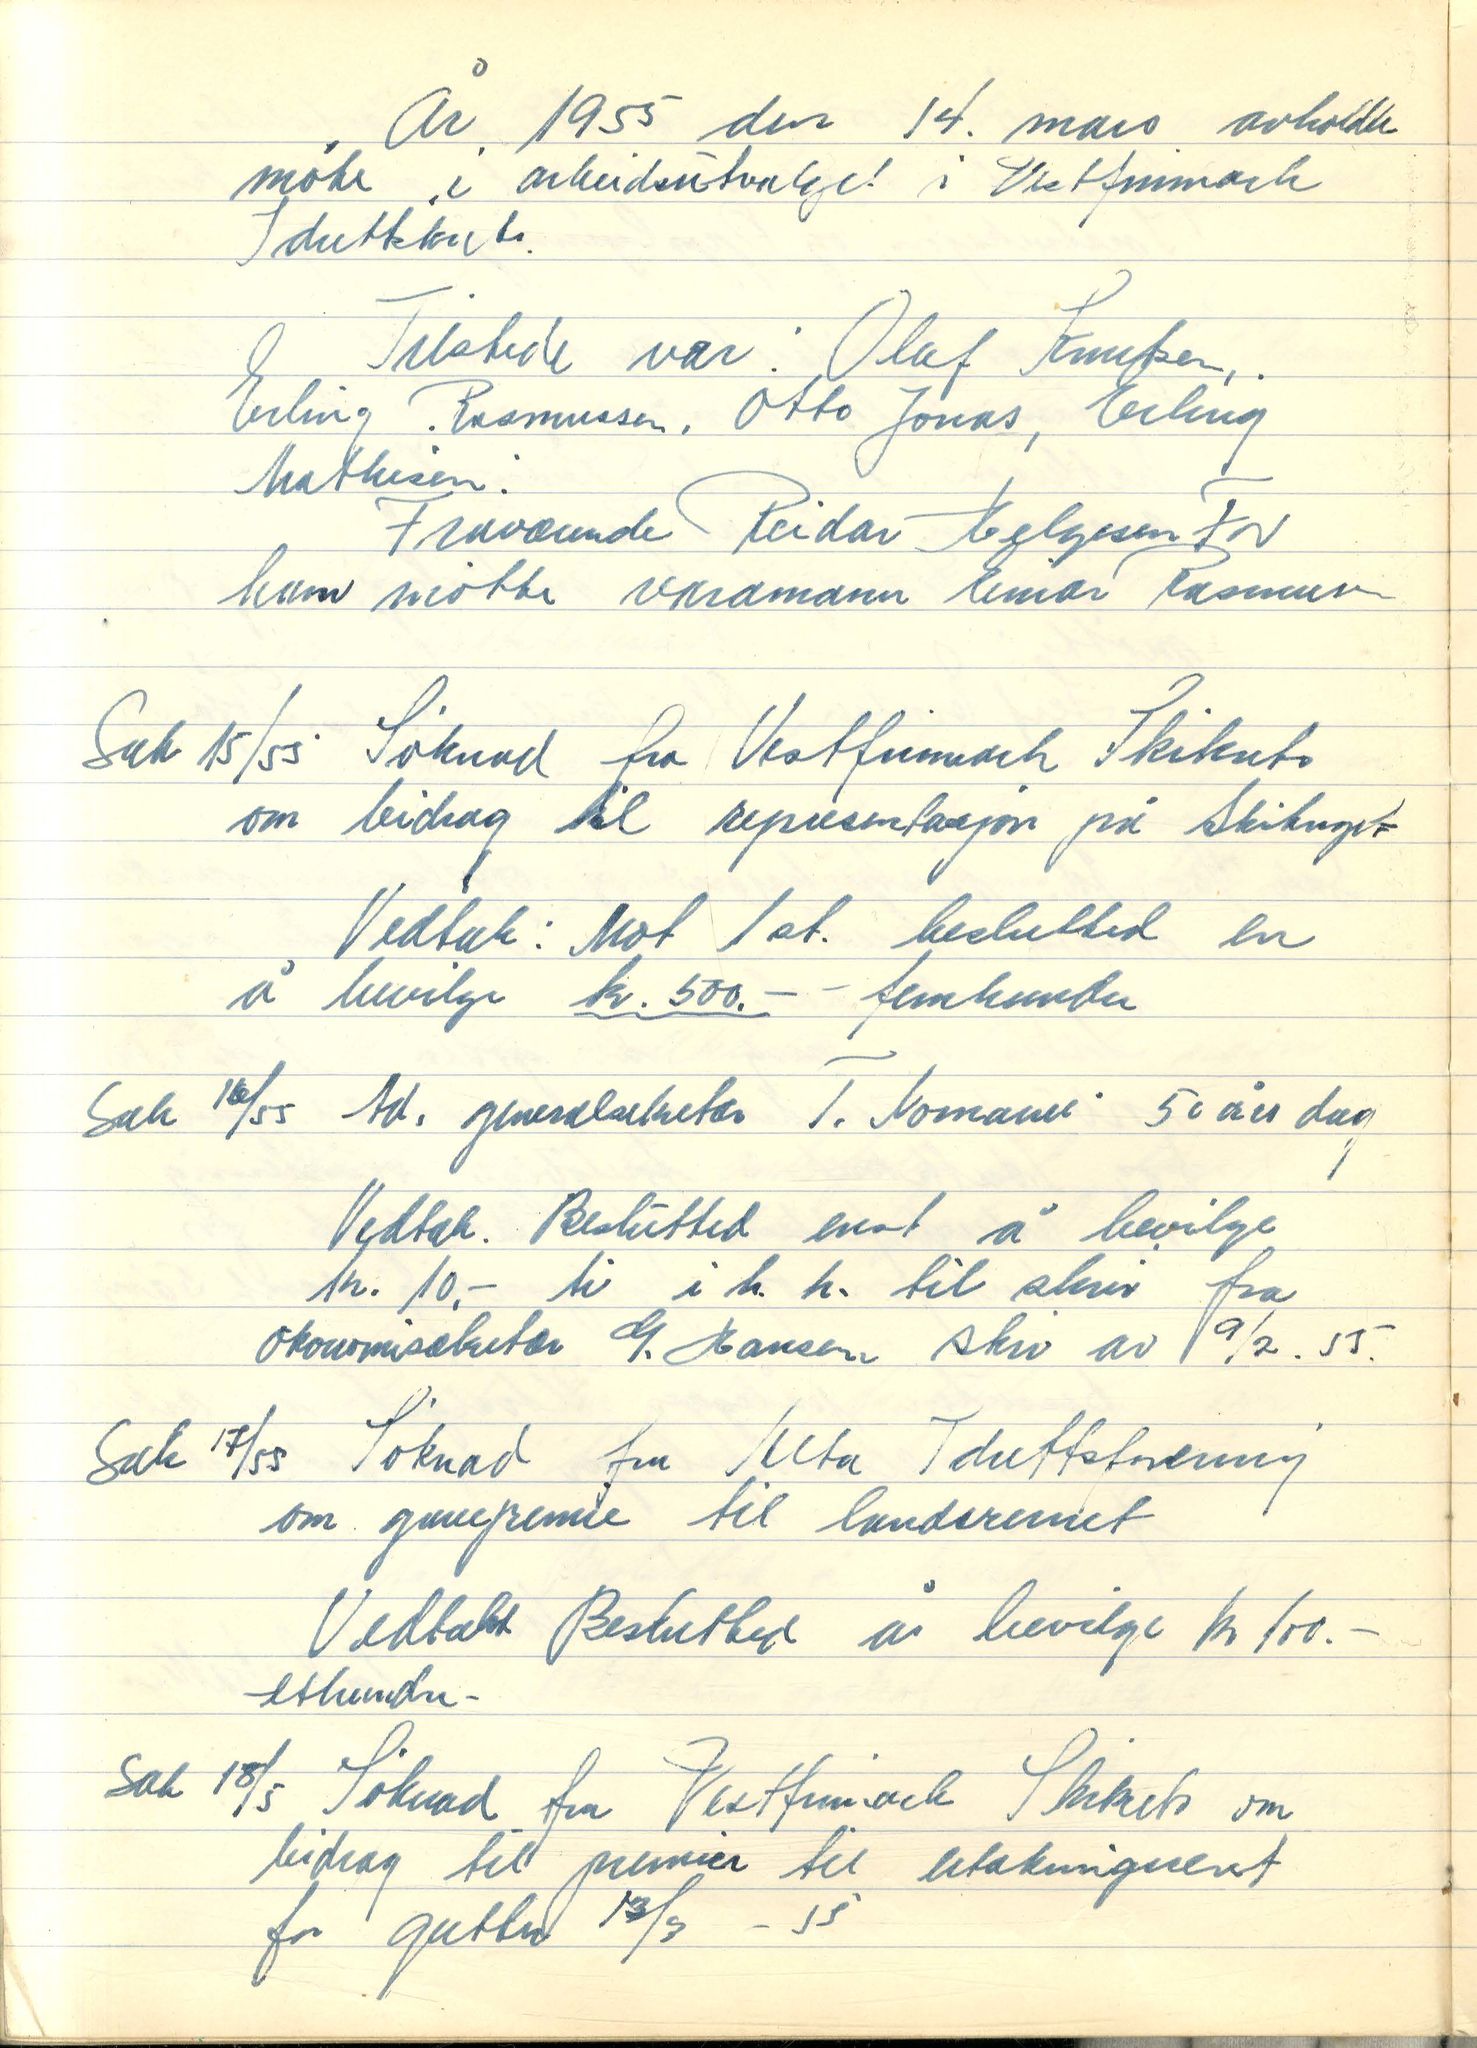 År 1955 den 14. mars avholdtes
møte i arbeidsutvalget i Vestfinmark
Idrettskrets.
Tilstede var: Olaf Knutsen,
Erling Rasmussen, Otto Jonas, Erling
Mathisen.
Fraværende Reidar Helgesen For
ham møtte varamann Einar Rasmussen
Sak 15/55 Söknad fra Vestfinmark Skikrets
om bidrag til representasjon på Skitinget
Vedtak: Mot 1 st. beslutted en
å bevilge kr. 500.- - femhundre
Sak 16/55 Ad. generalsekretær T. 50 års dag
Vedtak. Beslutted enst å bevilge
kr. 10,- ti i h. h. til skriv fra
ökonomisekretær G. Hansen skriv av 9/2. 55.
Sak 17/55 Söknad fra Alta Idrettsforening
om gavepremie til landsrennet
Vedtak Besluttet å bevilge kr 100.-
etthundre-
Sak 18/5 Söknad fra Vestfinmark Skikrets om
bidrag til premier til uttakningsrent
for gutter 13/3 - 55